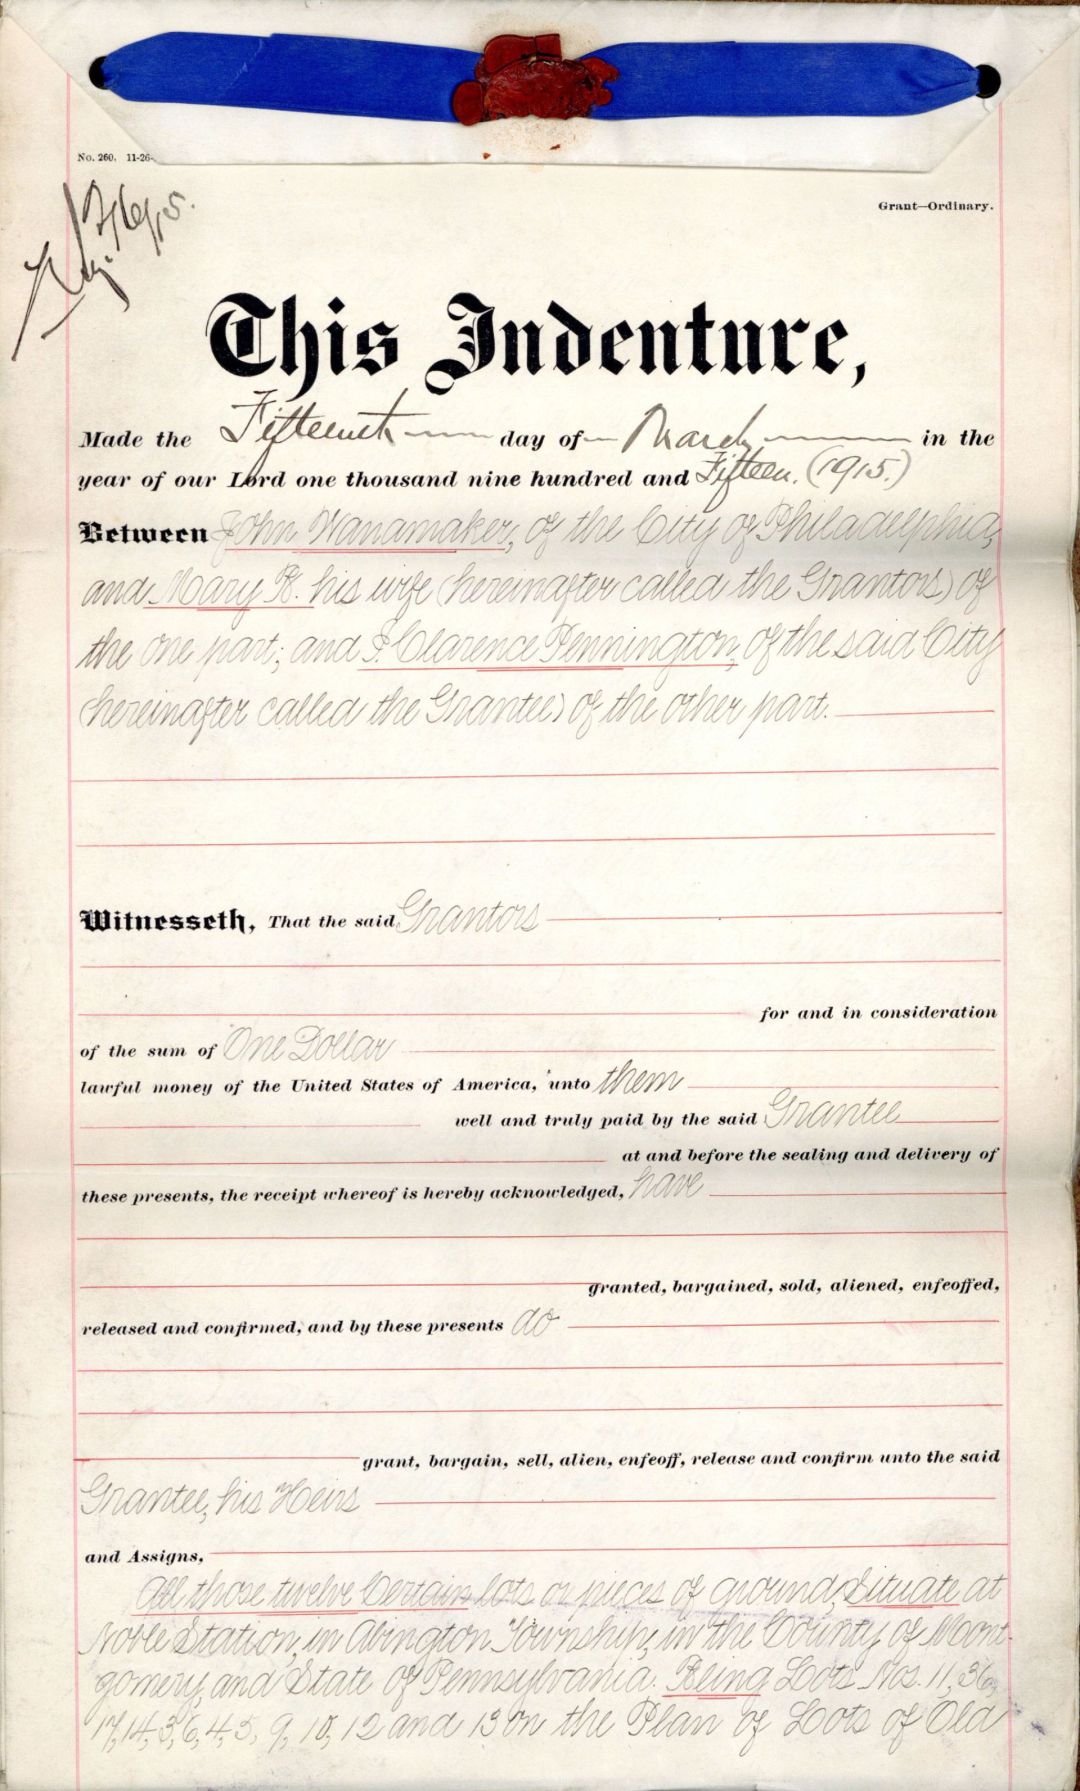 No. 260. 11-26-
Grant—Ordinary.
This Indenture,
Made the Fifteenth day of March in the
year of our Lord one thousand nine hundred and Fifteen. (1915.)
Between John Wanamaker, of the City of Philadelphia,
and Mary B. his wife (hereinafter called the Grantors) of
the one part; and S. Clarence Pennington, of the said City
(hereinafter called the Grantee) of the other part.
Witnesseth, That the said Grantors
for and in consideration
of the sum of One Dollar
lawful money of the United States of America, unto them
well and truly paid by the said Grantee
at and before the sealing and delivery of
these presents, the receipt whereof is hereby acknowledged, have
granted, bargained, sold, aliened, enfeoffed,
released and confirmed, and by these presents do
grant, bargain, sell, alien, enfeoff, release and confirm unto the said
Grantee, his Heirs
and Assigns,
All those twelve Certain lots or pieces of ground, Situate at
Noble Station, in Abington Township, in the County of Mont-
gomery, and State of Pennsylvania. Being Lots Nos. 11, 36,
17, 14, 3, 6, 4, 5, 9, 10, 12 and 13 on the Plan of Lots of Old